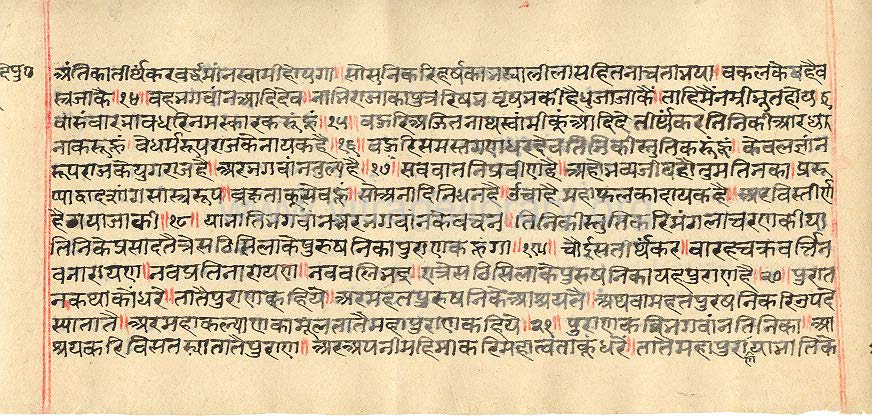 अंतिका तीर्थकर वर्द्धमान स्वामी होयगा॥ सो सुनिकरि हर्षका भस्या लीला सहित नाचता भया॥ वकल के
जाके॥१४॥ वह भगवांन आदिदेव॥ नाभिराजा का पुत्र रिषभ वृषभ की है धुजा जाकै॥ ताहि मैं नम्रीभूत होय
वारंवार भाव धरि नमस्कार करूं हूं॥१५॥ बहुरि अजितनाथ स्वामी कुं आदि दे तीर्थकर तिनिकी आराध
ना करूं हूं॥ वे धर्मरूप राज के नायक है॥१६॥ बहुरि समस्त गणधर देव तिनिकी स्तुति करूं हूं॥ केवलज्ञांन
रूप राज के युगराज है॥ अर भगवांन तुल्य है॥१७॥ सब वांननि प्रवीण है॥ अहो भव्य जीव हो तुम तिनका॥ प्ररू
प्या द्वादशांग सास्त्र रूप॥ सो अनादि निधन है॥ ऊंचा है महा फल का दायक है॥ अर विस्तीर्ण
है गया जाकी॥१८॥ या भांति भगवांन अर भगवांन के वचन॥ तिनिकी स्तुति करि मंगलाचरण कीया॥
तिनिके प्रसाद तै त्रेसठि सिलाके पुरुषनिका पुराण कहूंगा॥१९॥ चौईस तीर्थकर॥ बारह चक्रवर्त्ति
नव नारायण॥ नव प्रतिनारायण॥ नव बलिभद्र॥ ए त्रेसठि सिलाके पुरुषनिका यह पुराण है॥२०॥ पुरात
न कथा कों धरै॥ तातै पुराण कहिये॥ अर महत पुरुषनिके आश्रय तै॥ अथवा महत पुरषनि करि उपदे
स्या तातै॥ अर महा कल्याण का मूल तातै महापुराण कहिये॥२१॥ पुराण कवि भगवांन तिनिका॥ आ
श्रय करि विसतस्या तातै पुराण॥ अर अपनी महिमा करि महत्वता कुं धरै॥ तातै महापुराण॥ या भांति के